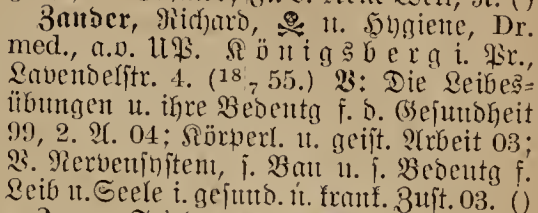 Zander, Richard, ☠ u. Hygiene, Dr.
med., a.o. UP. Königsberg i. Pr.,
Lavendelstr. 4. (18/7 55.) V: Die Leibes-
übungen u. ihre Bedeutg f. d. Gesundheit
99, 2. A. 04; Körperl. u. geist. Arbeit 03;
V. Nervensystem, s. Bau u. s. Bedeutg f.
Leib u. Seele i. gesund. u. krank. Zust. 03. ()